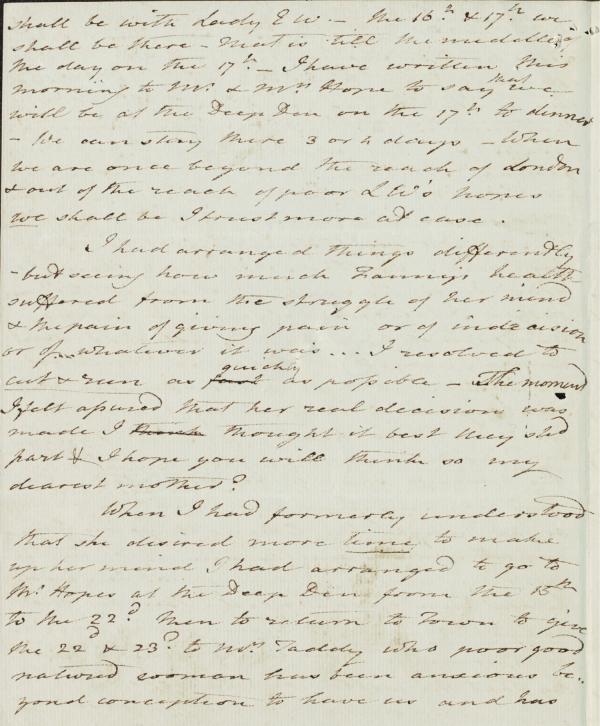 shall be with Lady E W. – the 16th & 17th we
shall be there – that is till the middle of
the day on the 17th – I have written this
morning to Mr. & Mrs Hope to say that we
will be at the Deep Den on the 17th to dinner
– We can stay there 3 or 4 days – When
we are once beyond the reach of London
& out of the reach of poor LW's hopes
we shall be I trust more at ease.
I had arranged things differently
– but seeing how much Fanny's health
suffered from the struggle of her mind
& the pain of giving pain or of indecision
or of.. whatever it was... I resolved to
cut & run as fast quickly as possible – The moment
I felt assured that her real decision was
made I think thought it best they shd
part & I hope you will think so my
dearest mother?
When I had formerly understood
that she desired more time to make
up her mind I had arranged to go to
Mr. Hopes at the Deep Den from the 15th
to the 22d. then to return to Town to give
the 22d & 23d. to Mrs. Taddy who poor good
natured woman has been anxious be-
yond conception to have us and has